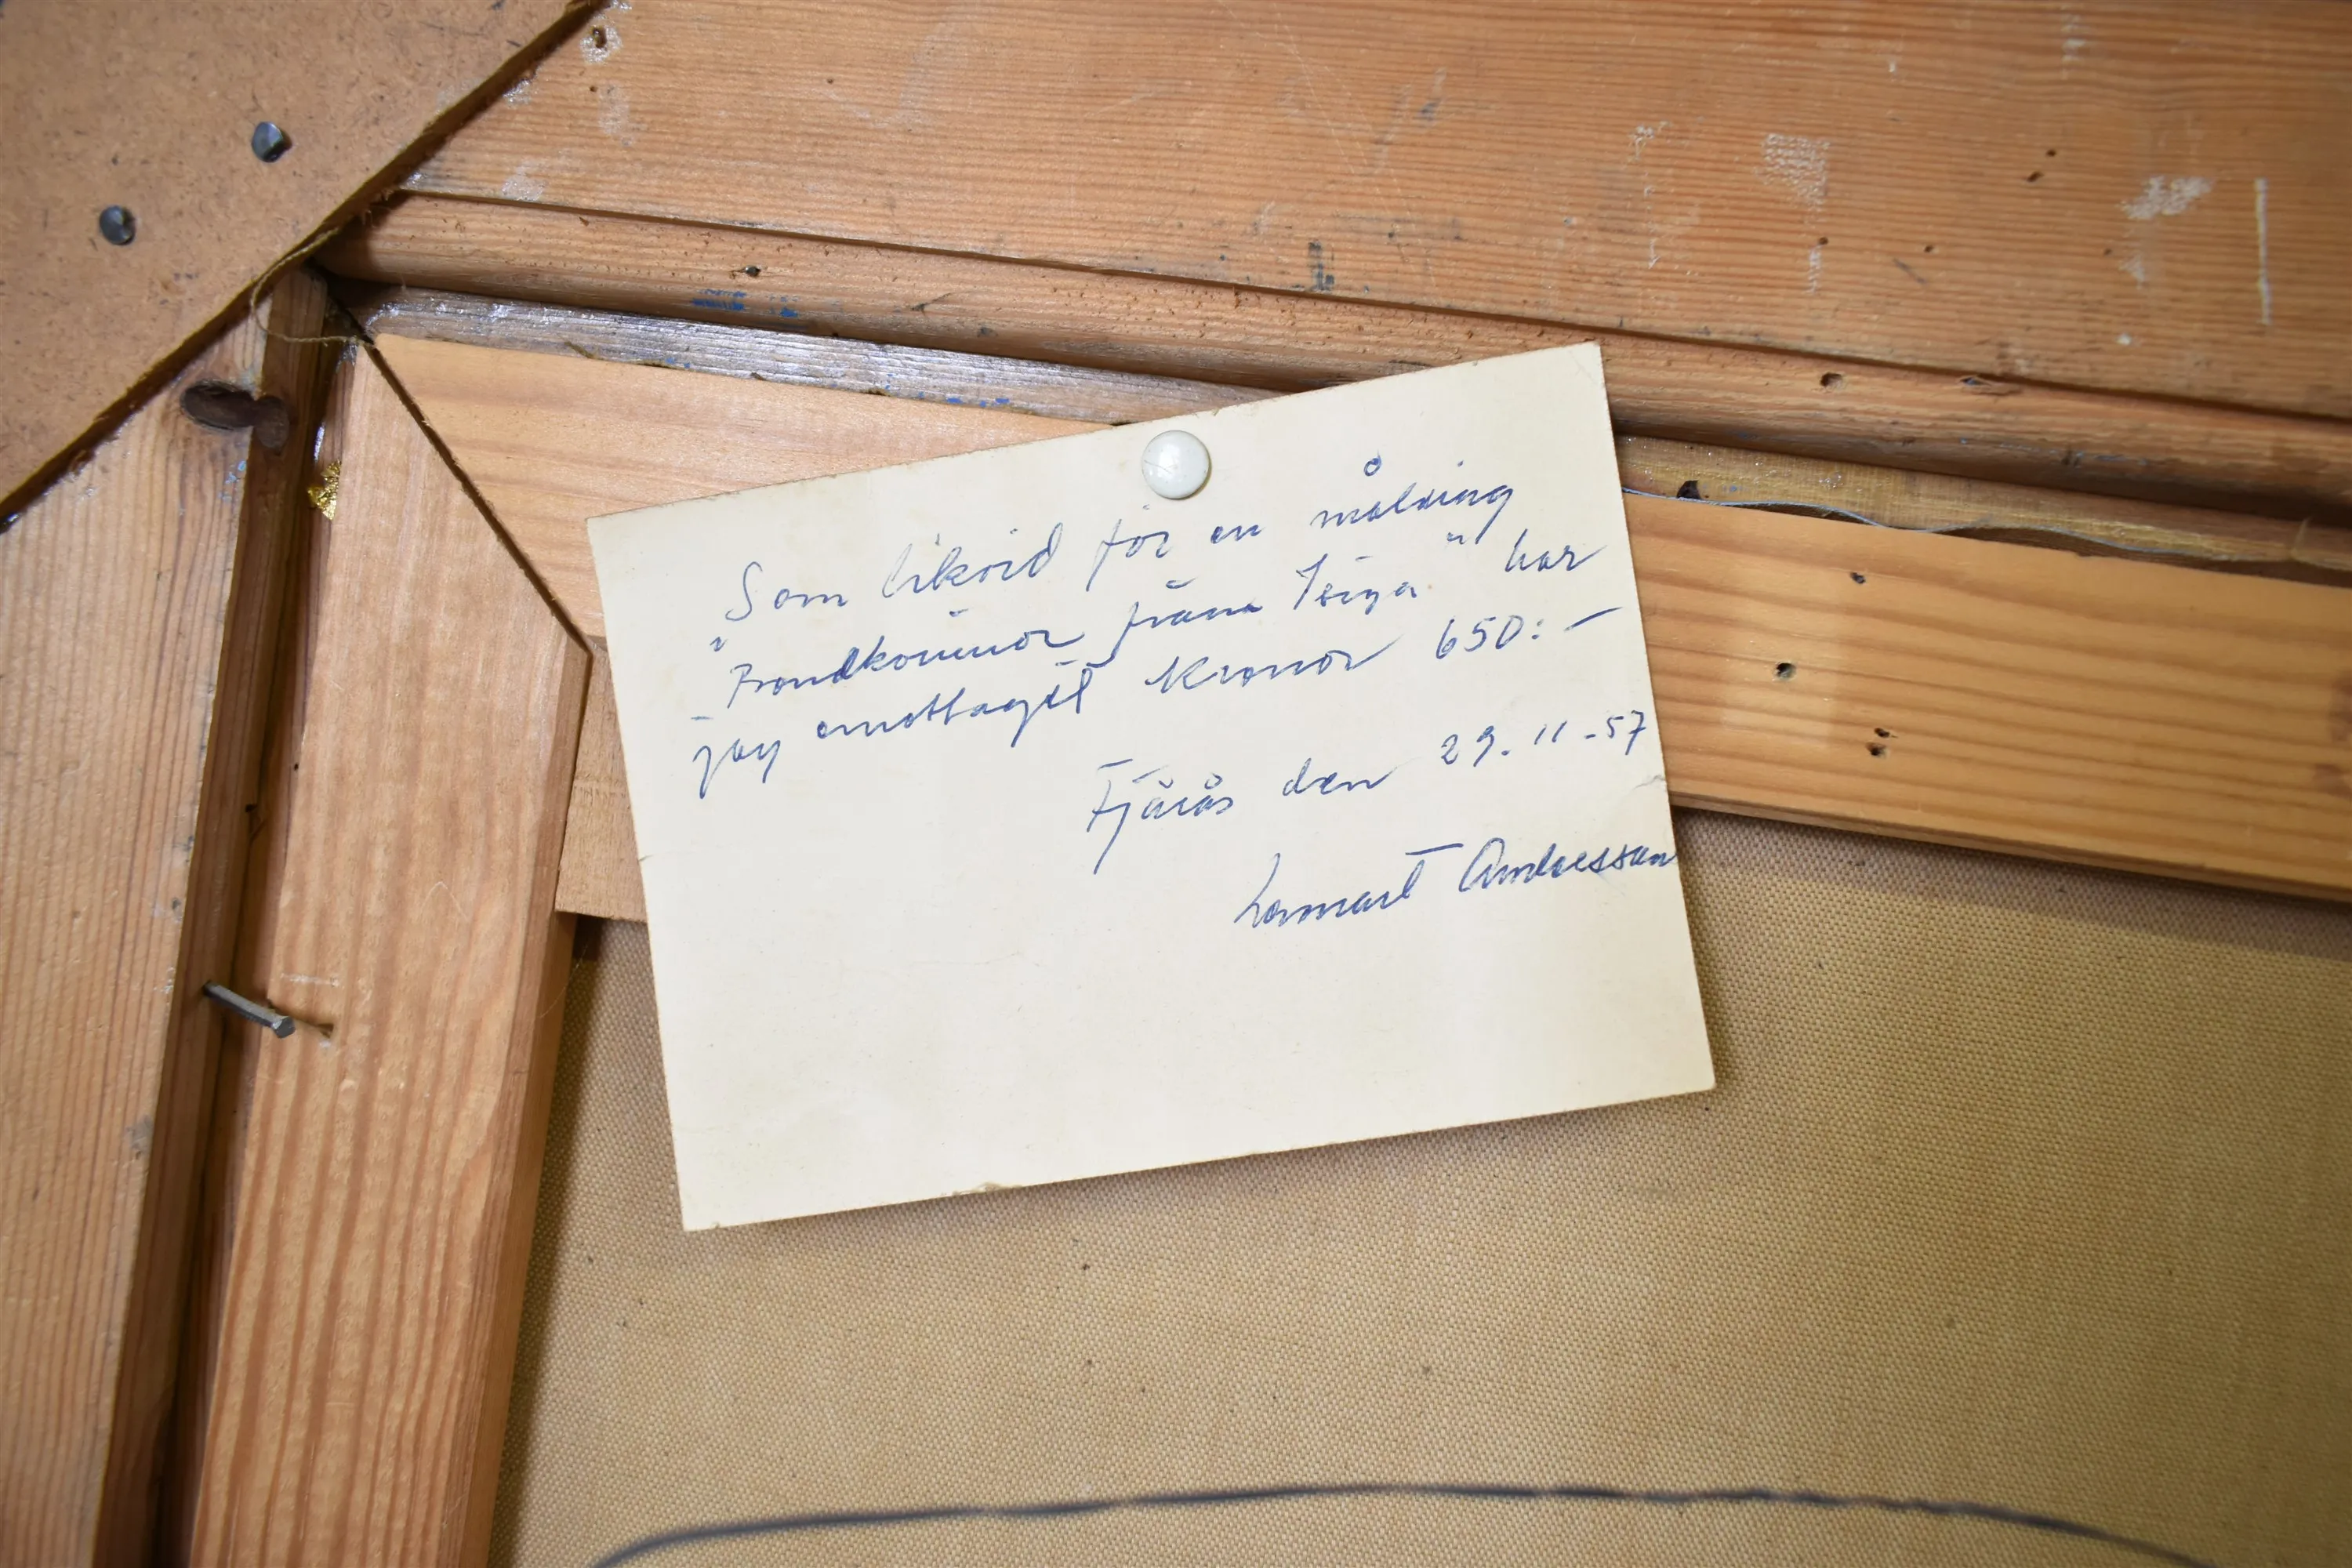 Som likvid för en målning
"Bondkvinnor från " har
jag emottagit Kronor 650:-
Fjärås den 29.11-57
Lennart Andreasson